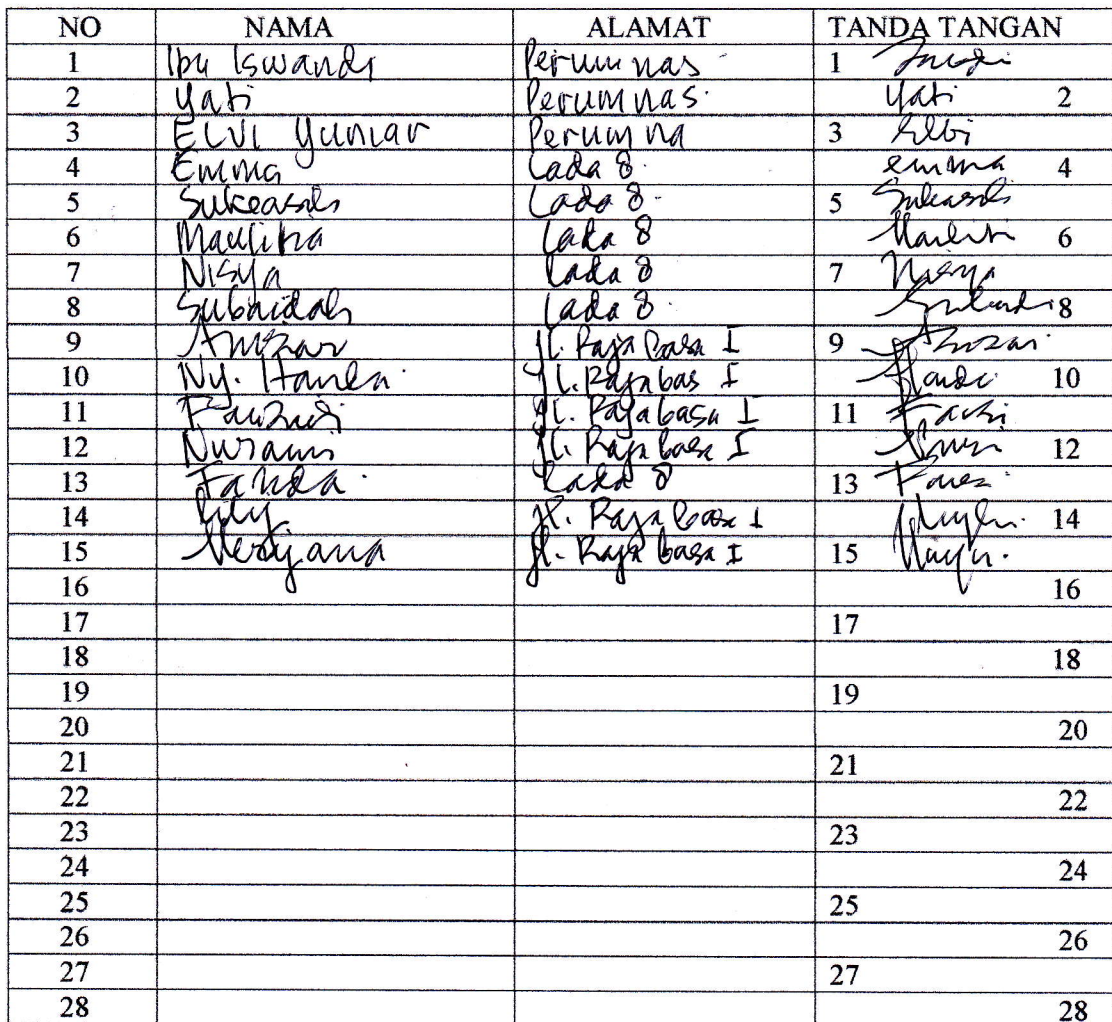 NO NAMA ALAMAT TANDA TANGAN
1 Ibu Iswandi Perumnas 1
2 Yati Perumnas. Yati 2
3 ELVI Yuniar Perumna 3 Elbi
4 Emma Lada 8. emma 4
5 Sukeasih Lada 8. 5 Sukeasih
6 Maulina Lada 8 6
7 Nisya Lada 8 7 Nisya
8 Subaidah Lada 8. 8
9 Jl. Raja Basa I 9
10 Ny. Jl. Rajabas I 10
11 Jl. Rajabasa I 11
12 Nuraini Jl. Raja basa I 12
13 Fanda. Lada 8 13
14 Lily Jl. Raja Basa I 14
15 Jl. Raja basa I 15
16 16
17 17
18 18
19 19
20 20
21 21
22 22
23 23
24 24
25 25
26 26
27 27
28 28